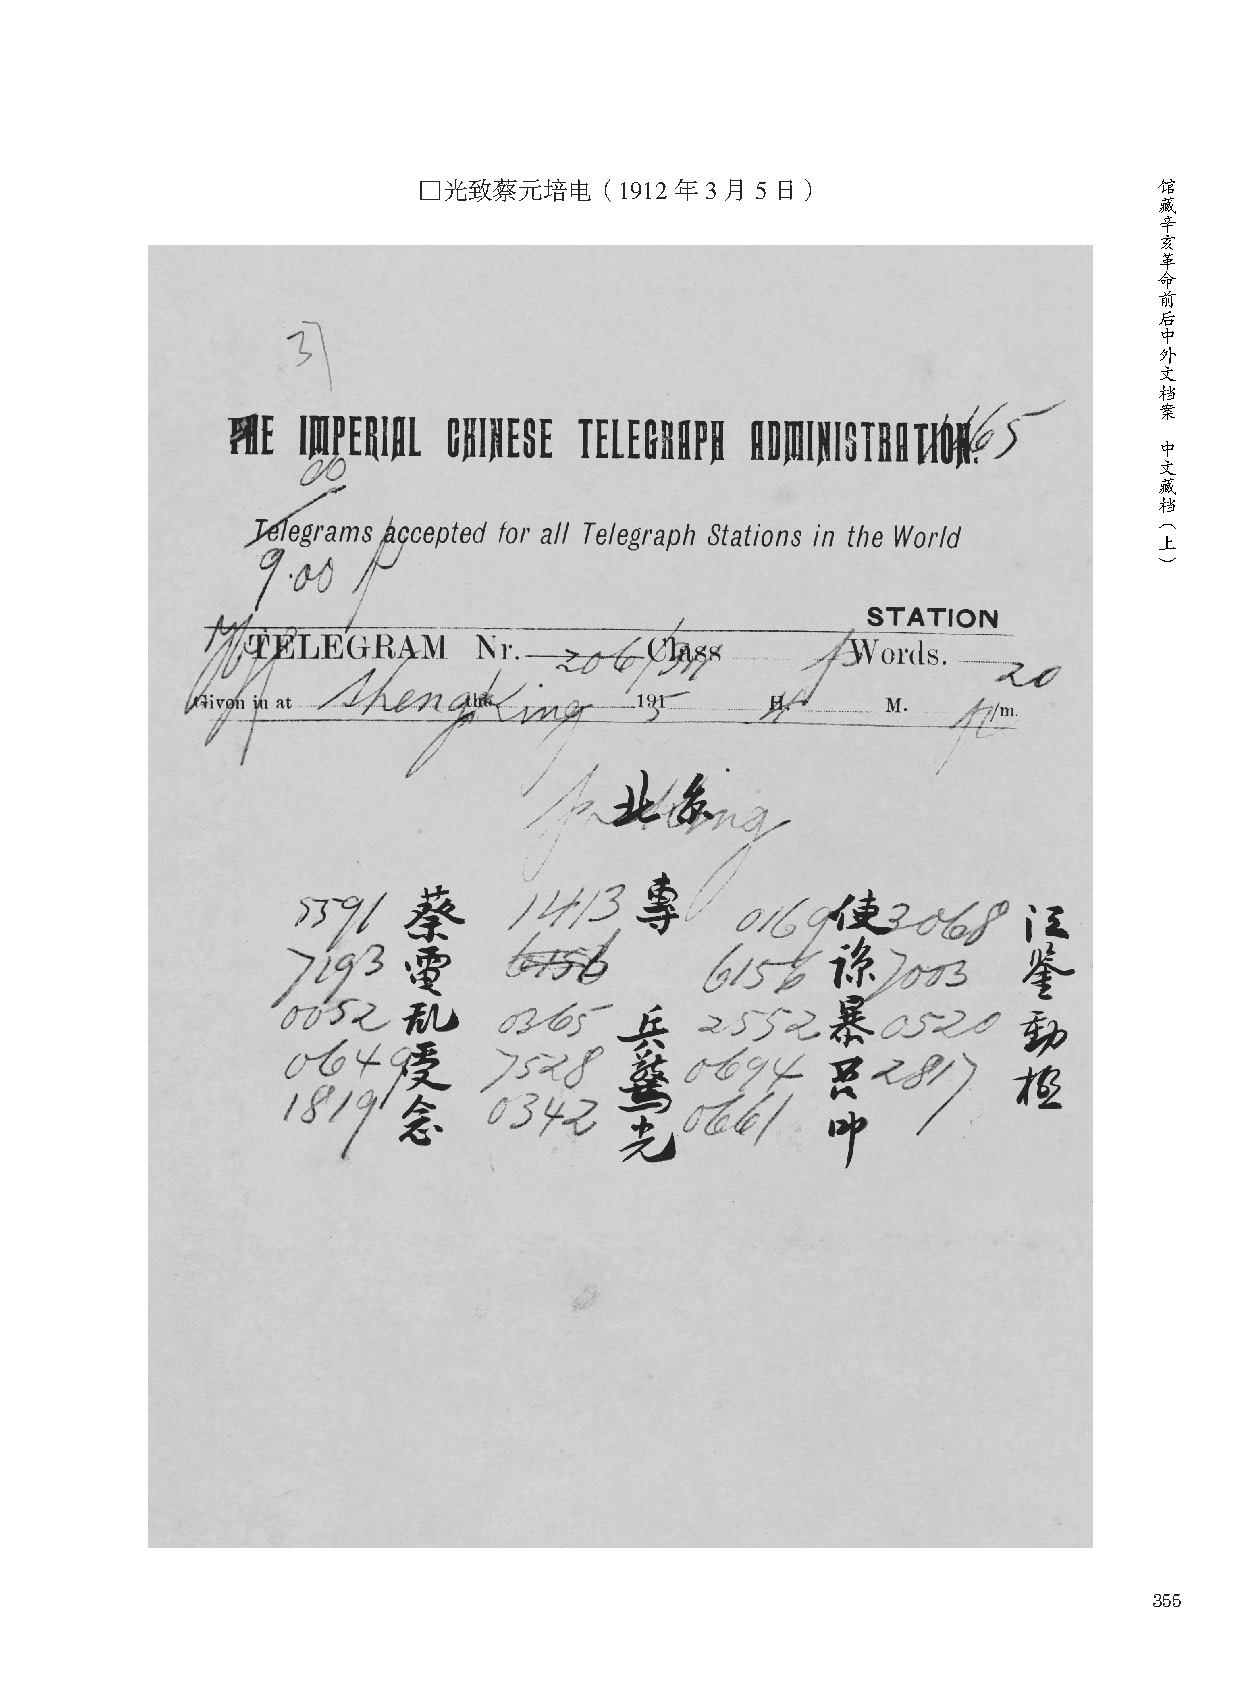 □光致蔡元培电（1912年3月5日）
馆藏辛亥革命前后中外文档案 中文藏档（上）
37
THE IMPERIAL CHINESE TELEGRAPH ADMINISTRATION.
Telegrams accepted for all Telegraph Stations in the World
9.00 p
STATION
TELEGRAM Nr. 206/3m Class Words. 20
Given in at Shengking the 5 191 H. 4 M. /m.
北京
Peking
5591 蔡 1413 專 0169 使 3068 汪
7193 電 6156 6156 諒 7003 鉴
0052 乱 0365 兵 2552 暴 0520 動
0649 受 7528 驚 0694 另 2817 極
1819 念 0342 光 0661 叩
355